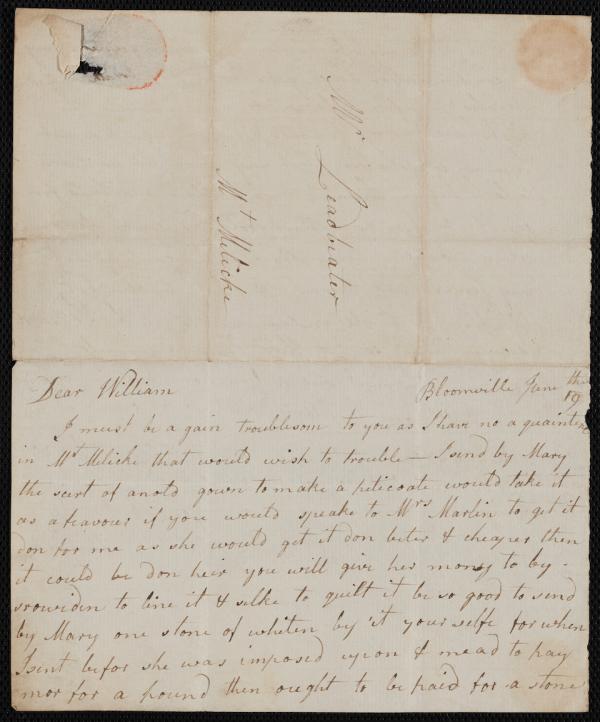 Mr Leadbater
Mt Melicke
Dear William
Bloomville June the
19
I must be a gain troublesom to you as I have no a quaintence
in Mt Melicke that would wish to trouble — I send by Mary
the scert of an old gown to make a peticoate would take it
as a favour if you would speake to Mrs Marlin to get it
don for me as she would get it don beter & cheaper then
it could be don heir you will give her mony to by -
srowiden to line it & silke to quilt it be so good to send
by Mary one stone of whiten by it your selfe for when
I sent befor she was imposed upon & mead to pay
mor for a pound then ought to be paid for a stone